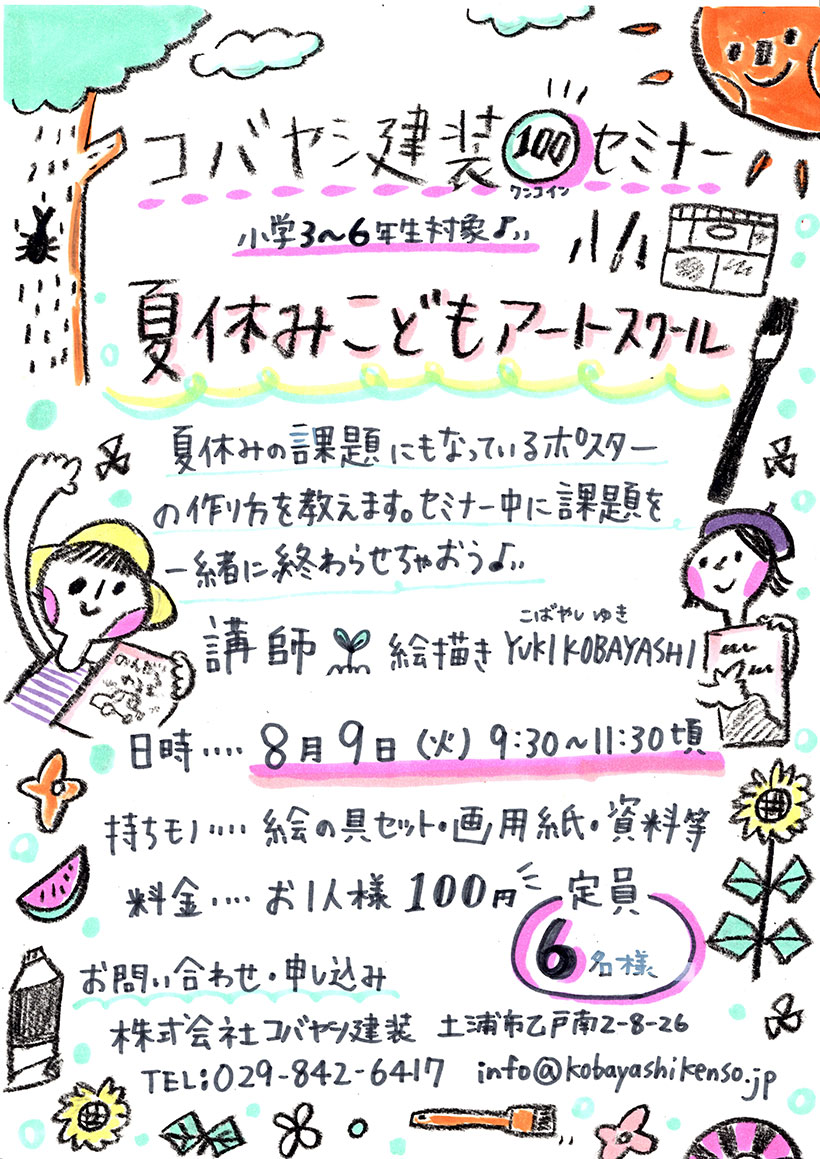 コバヤシ建装100セミナー
ワンコイン
小学3〜6年生対象♪
夏休みこどもアートスクール
夏休みの課題にもなっているポスター
の作り方を教えます。セミナー中に課題を
一緒に終わらせちゃおう♪
こばやし ゆき
講師 絵描き YUKI KOBAYASHI
日時‥‥8月9日(火) 9:30〜11:30頃
持ちモノ‥‥絵の具セット・画用紙・資料等
料金‥‥お1人様100円 定員
6名様
お問い合わせ・申し込み
株式会社コバヤシ建装 土浦市乙戸南2-8-26
TEL:029-842-6417 info@kobayashikenso.jp